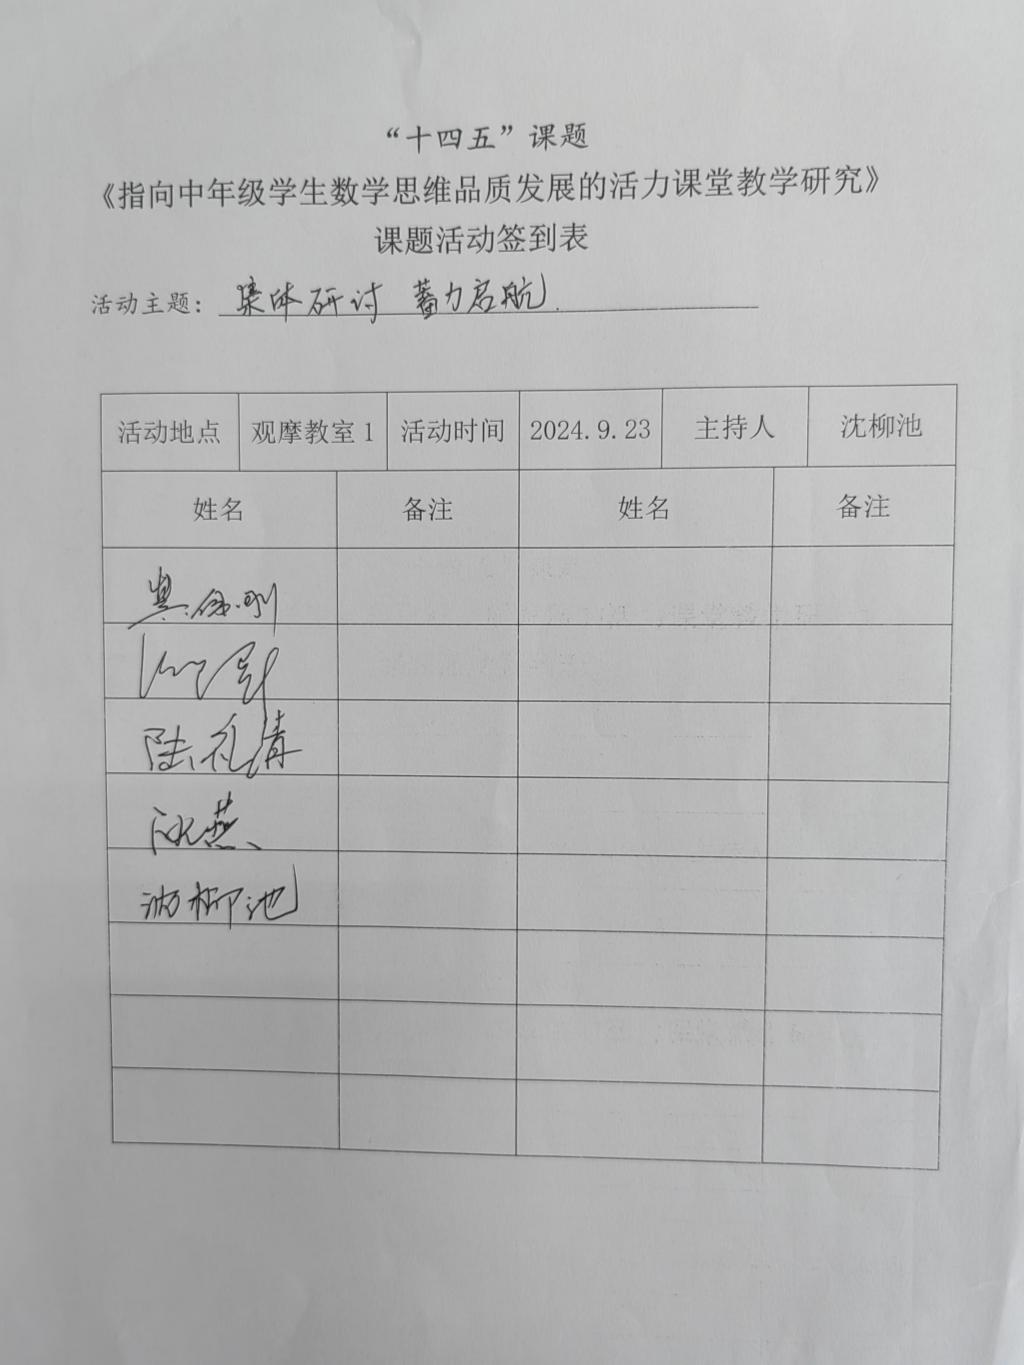 “十四五”课题
《指向中年级学生数学思维品质发展的活力课堂教学研究》
课题活动签到表
活动主题：集体研讨 蓄力启航
活动地点 观摩教室1 活动时间 2024.9.23 主持人 沈柳池
姓名 备注 姓名 备注
陆礼清
燕
沈柳池